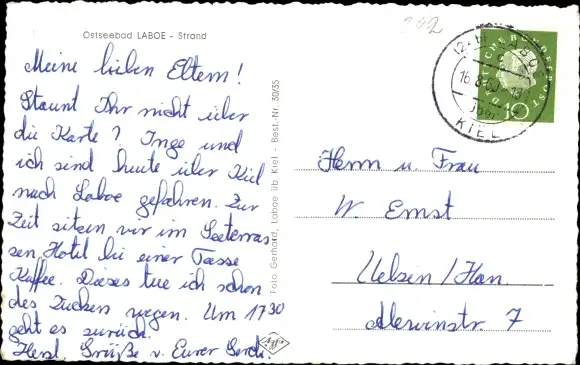 Ostseebad LABOE - Strand
Meine lieben Eltern!
Staunt Ihr nicht über
die Karte? Inge und
ich sind heute über Kiel
nach Laboe gefahren. Zur
Zeit sitzen wir im Seeterras
sen Hotel bei einer Tasse
Kaffee. Dieses tue ich schon
des Zuckers wegen. Um 17 30
geht es zurück.
Herzl. Grüße v. Eurer
Foto Gerhard, Laboe üb. Kiel - Best.-Nr. 30/35
242
DEUTSCHE BUNDESPOST
10
LABOE
16.8.60
KIEL
Herrn u. Frau
W. Ernst
Uelzen/Han.
7